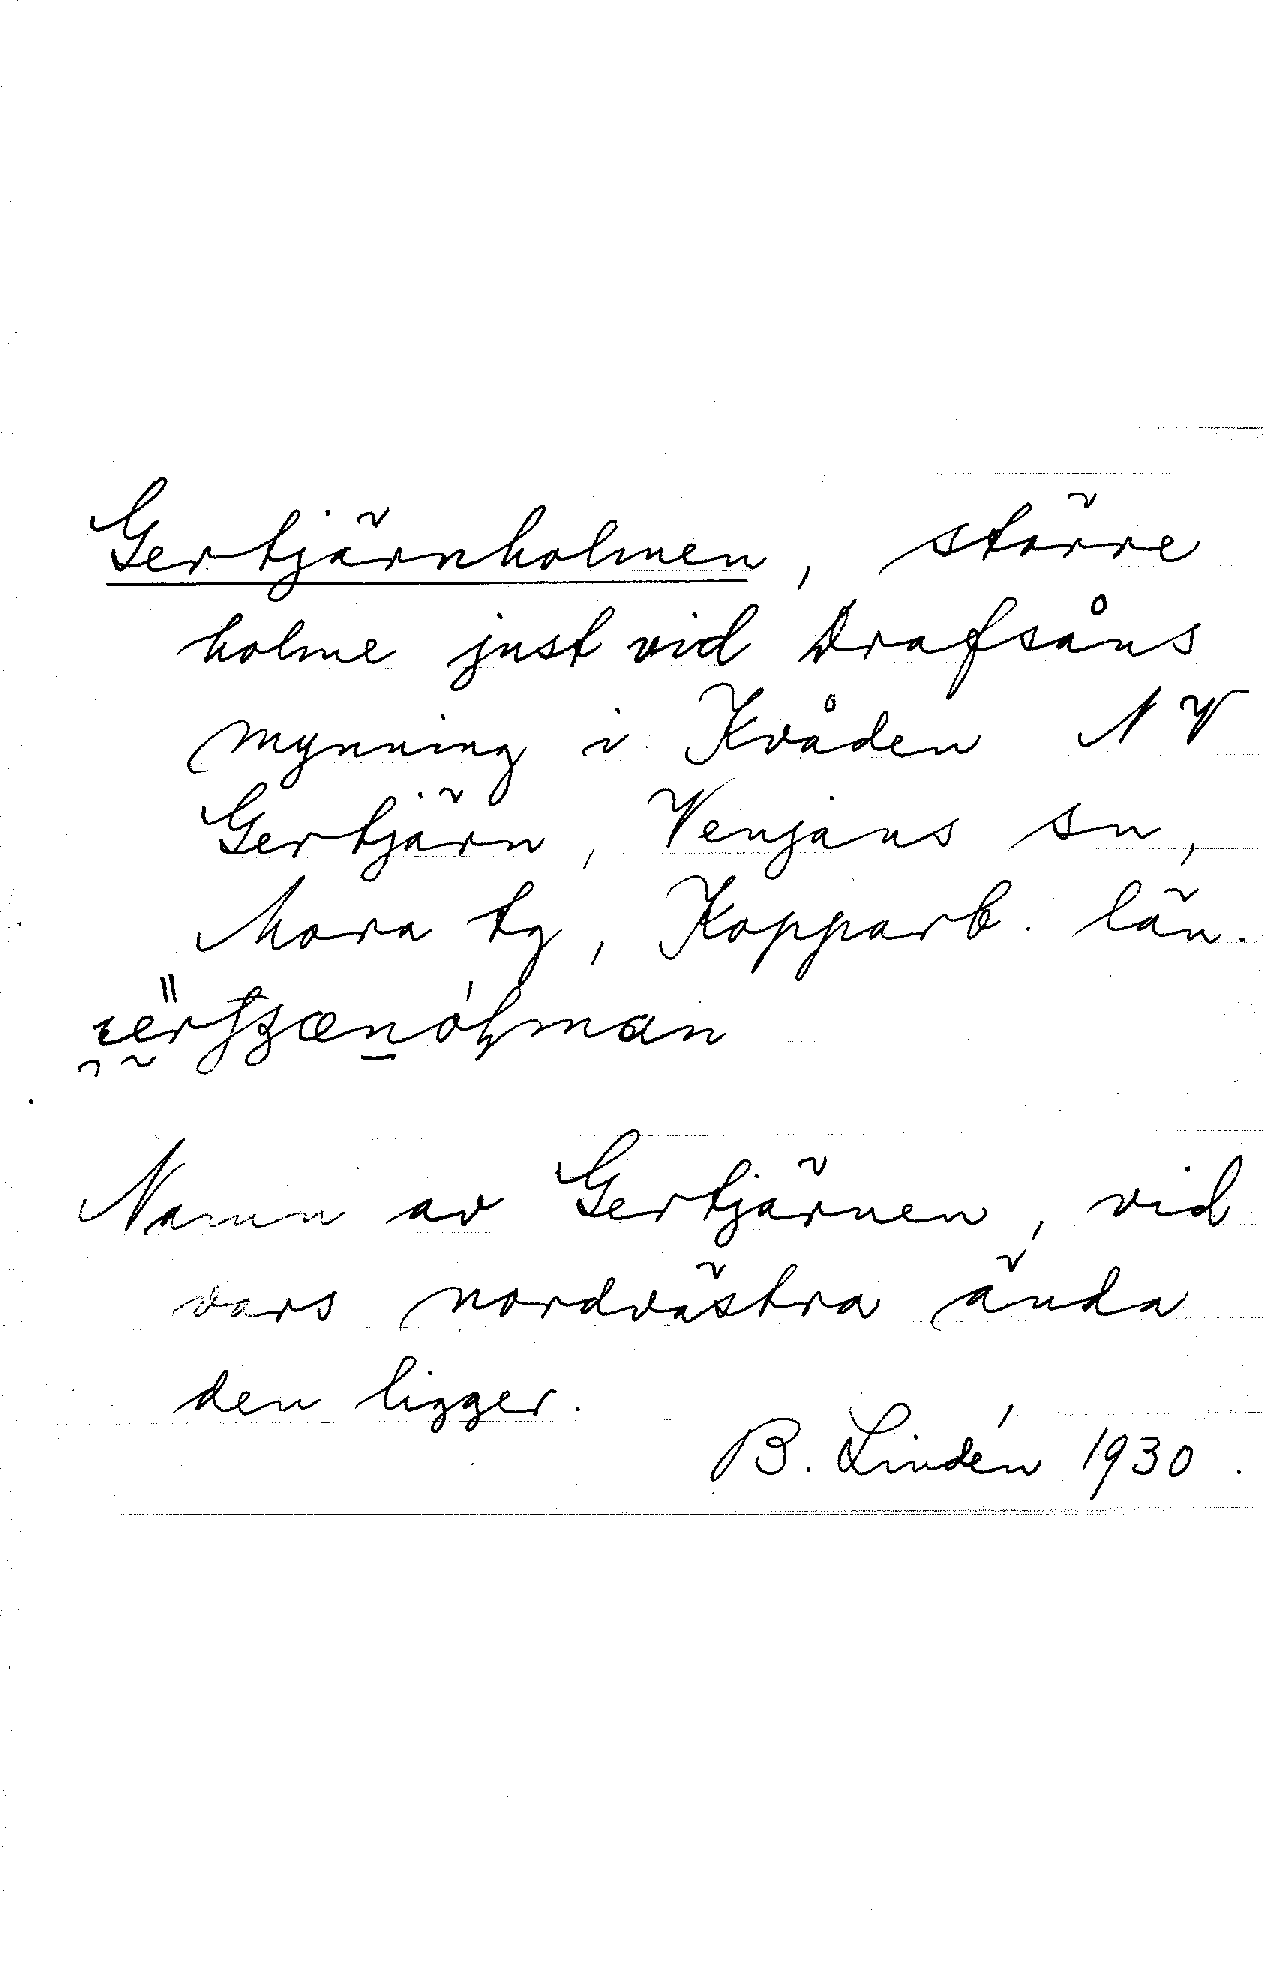 Gertjärnholmen, större
holme just vid Drafsåns
mynning i Kvåden NV
Gertjärn, Venjans sn,
Mora tg, Kopparb. län.
Namn av Gertjärnen, vid
vars nordvästra ända
den ligger.
B. Lindén 1930.